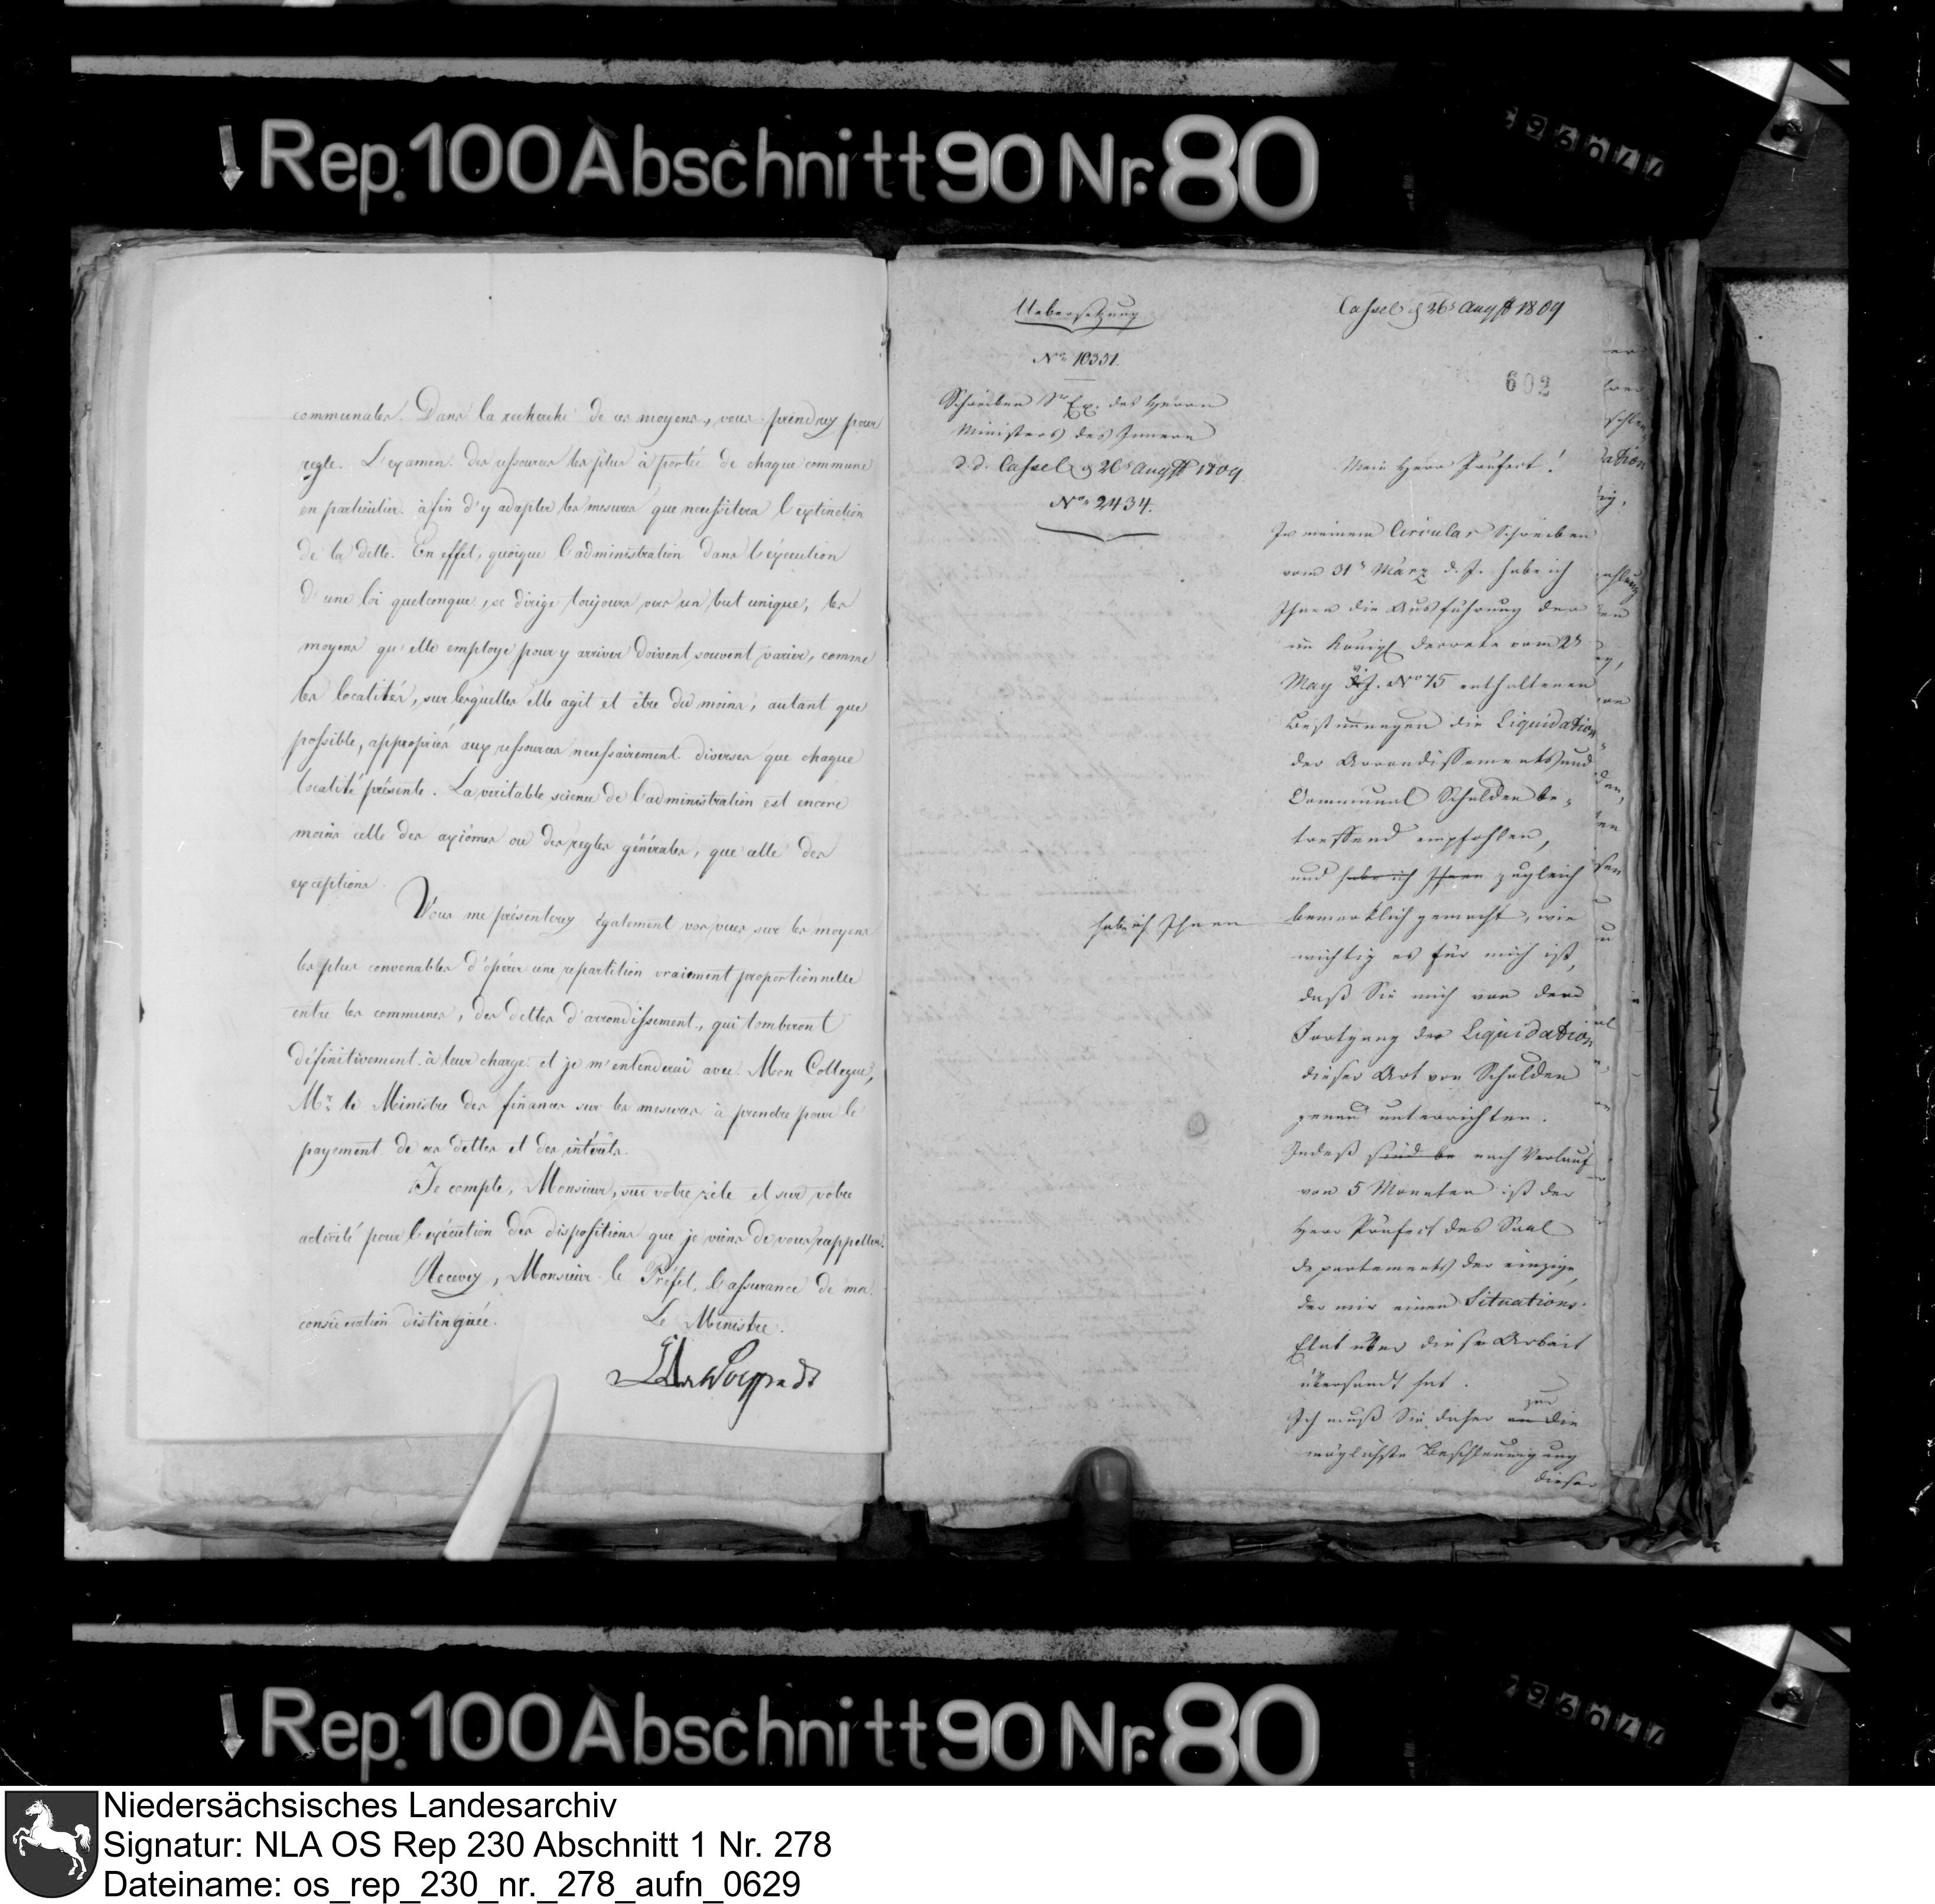 Rep. 100 Abschnitt 90 Nr. 80
communales. Dans la recherche de ces moyens, vous prendrez pour
regle. L'examen des ressources les plus à portée de chaque commune
en particulier. àfin d'y adapter les mesures que necessitera l'extinction
de la dette. En effet, quoique l'administration dans l'éxecution
d'une loi quelconque, se dirige toujours vers un but unique, les
moyens qu'elle employe pour y arriver doivent souvent varier, comme
les localités, sur lesquelles elle agit et être du moins, autant que
possible, appropriés aux ressources necessairement diverses que chaque
localité présente. La veritable science de l'administration est encore
moins celle des axiômes ou des regles générales, que celle des
exceptions.
Vous me présenterez également vos vues sur les moyens
les plus convenables d'opérer une repartition vraiment proportionnelle
entre les communes, des dettes d'arrondissement, qui tomberont
définitivement à leur charge et je m'entenderai avec Mon Collegue,
Mr. le Ministre des finances sur les mesures à prendre pour le
payement de ces dettes et des intérêts.
Je compte, Monsieur, sur votre zèle et sur votre
activité pour l'exécution des dispositions que je viens de vous rappeller.
Recevez, Monsieur le Préfet, l'assurance de ma
consideration distinguée.
Le Ministre.
Uebersetzung
No. 10331.
Schreiben Sr Ex. des Herrn
Ministers des Innern
d. d. Cassel d 26t Augst 1809
No. 2434.
habe ich Ihnen
Cassel d 26t Augst 1809
602
Mein Herr Präfect!
In meinem Circular Schreiben
vom 31t März d. J. habe ich
Ihnen die Ausführung der
im Königl Decrete vom 2t
May v. J. No 75 enthaltenen
Bestimmungen die Liquidation
der Arrondissements und
Communal Schulden be-
treffend empfohlen,
und habe ich Ihnen zugleich
bemerklich gemacht, wie
wichtig es für mich ist,
daß Sie mich von dem
Fortgang der Liquidation
dieser Art von Schulden
genau unterrichten.
Indeß sind be nach Verlauf
von 5 Monaten ist der
Herr Präfect des Saal
departements der einzige,
der mir einen Situations-
Etat über diese Arbeit
übersandt hat.
zur
Ich muß Sie daher an die
möglichste Beschleunigung
dieser
Rep. 100 Abschnitt 90 Nr. 80
Niedersächsisches Landesarchiv
Signatur: NLA OS Rep 230 Abschnitt 1 Nr. 278
Dateiname: os_rep_230_nr._278_aufn_0629